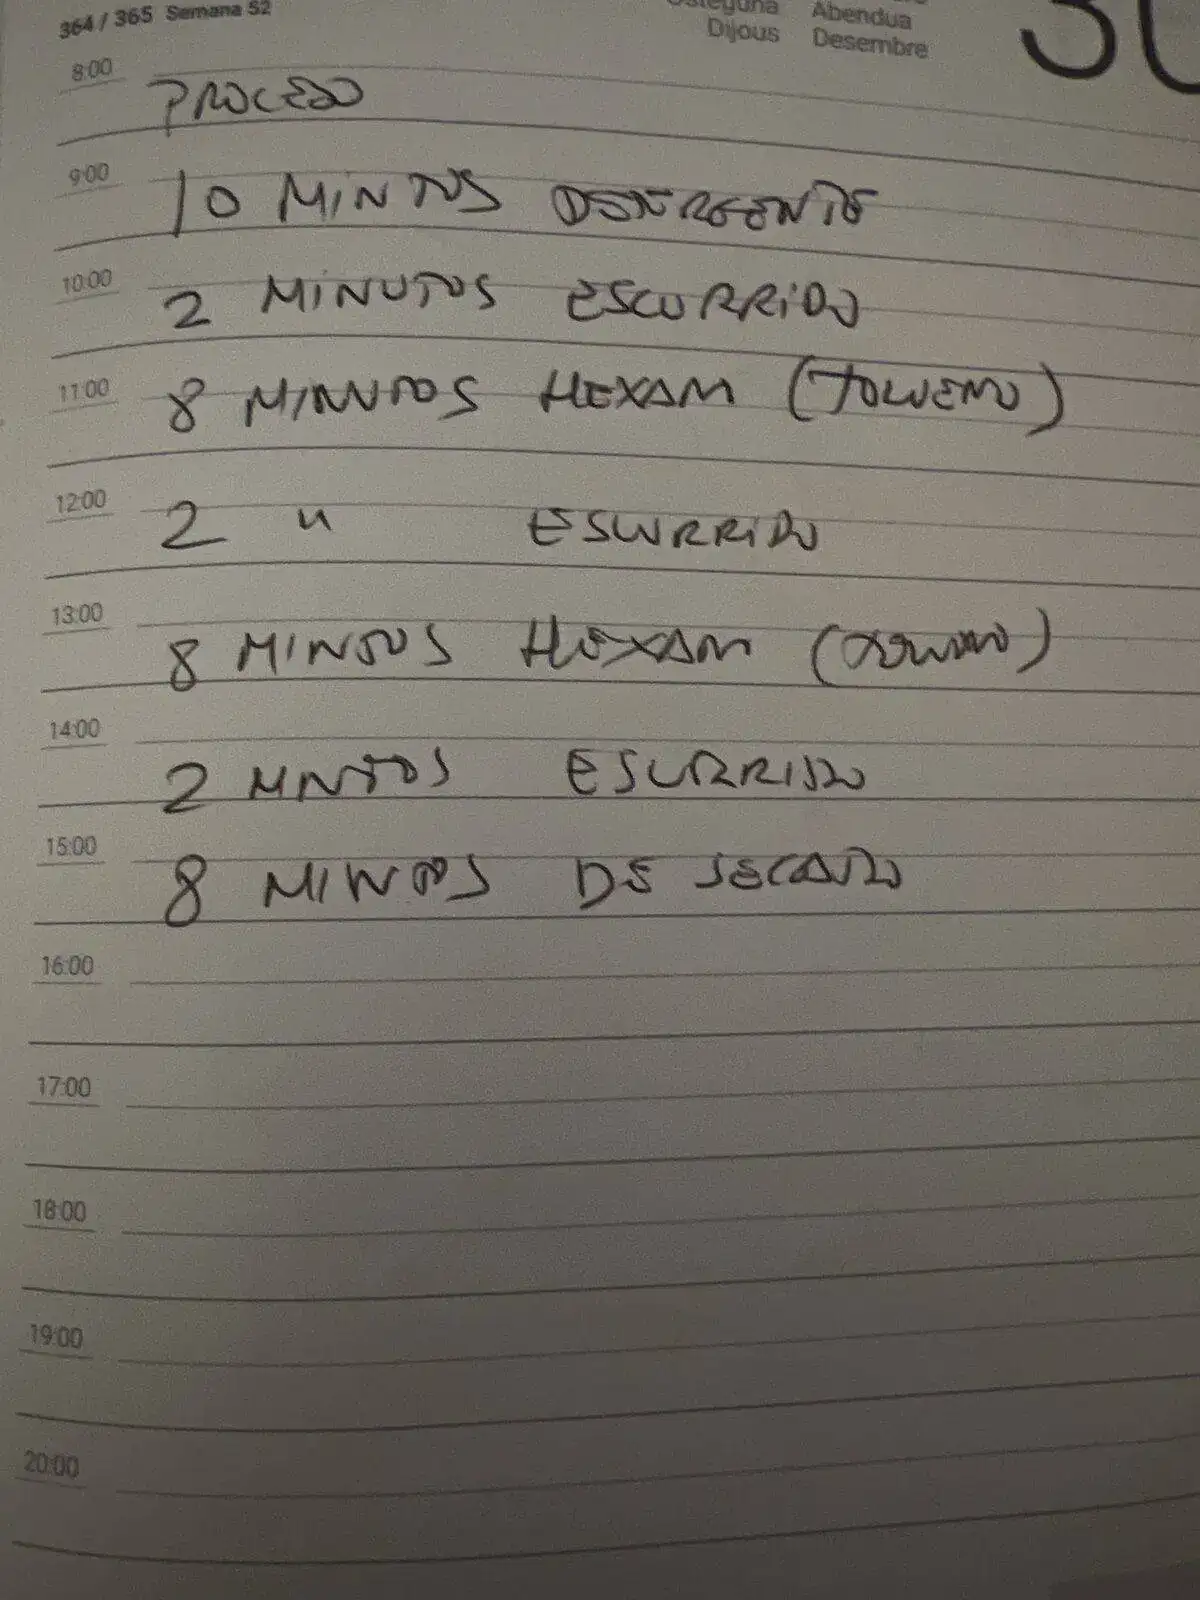 364 / 365 Semana 52
Osteguna Abendua
Dijous Desembre
30
8:00 PROCESO
9:00 10 MINTOS DETERGENTE
10:00 2 MINUTOS ESCURRIDO
11:00 8 MINUTOS HEXAM (TOLUENO)
12:00 2 " ESCURRIDO
13:00 8 MINTOS HEXAM (TOLUENO)
14:00 2 MNTOS ESCURRIDO
15:00 8 MINTOS DE SECADO
16:00
17:00
18:00
19:00
20:00